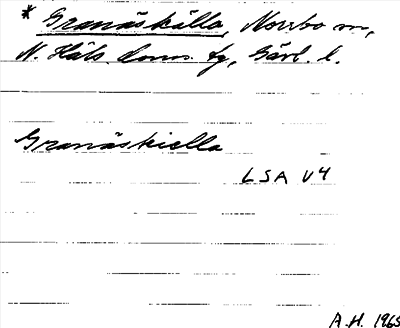 * Granäskälla, Norrbo sn,
N. Häls. doms. fg, Gävl. l.
Granäskiella
LSA V4
A.H. 1965